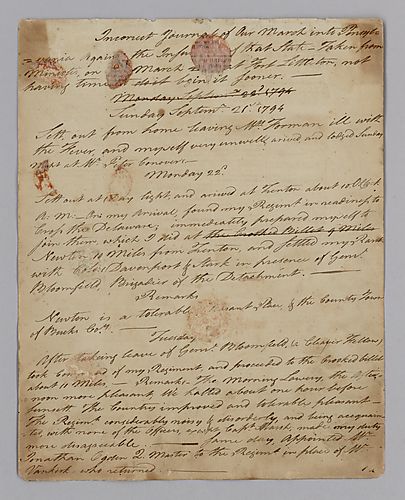 Incorrect Journal of Our March into Pensyl-
=vania Against the Insurgents of that State - Taken from
Minutes, on March at Fort Littleton, not
having time to do it begin it sooner. —
Monday Septemr. 22d. 1794
Sunday Septemr. 21st. 1794
Sett out from home leaving Mrs. Forman ill with
the Fever, and myself very unwell, arived and lodged Sunday
Night at Mr. Peter Conover. —
Monday 22d.
Sett out at Day light, and arived at Trenton about 10 OClock
A:M:— On my Arrival, found my Regiment in readiness to
Cross the Delaware, immediately prepared myself to
join them, which I did at the Crooked Billet 9 Miles
Newton 10 Miles from Trenton, and settled my Rank
with Colo. Davenport & Stark in presence of Genl.
Bloomfield, Brigadier of the Detachment. —
Remarks
Newton is a tolerable pleasant Place, & the County Town
of Bucks Coy. —
Tuesday
After taking leave of Genl. Bloomfield, (a Clever Fellow)
took Command of my Regiment, and proceeded to the Crooked billet
about 10 Miles — Remarks - The Morning Lowery, the After-
noon more pleasant. We halted about one hour before
sunsett. The Country improved and tolerable pleasant —
The Regimt. considerably noisy & disorderly, and being acquain-
ted, with none of the Officers, except Capt. made my duty
more disagreeable — Same day, Appointed Mr.
Jonathan Ogden Qr. Master to the Regiment in place of Mr.
Vankirk who returned —